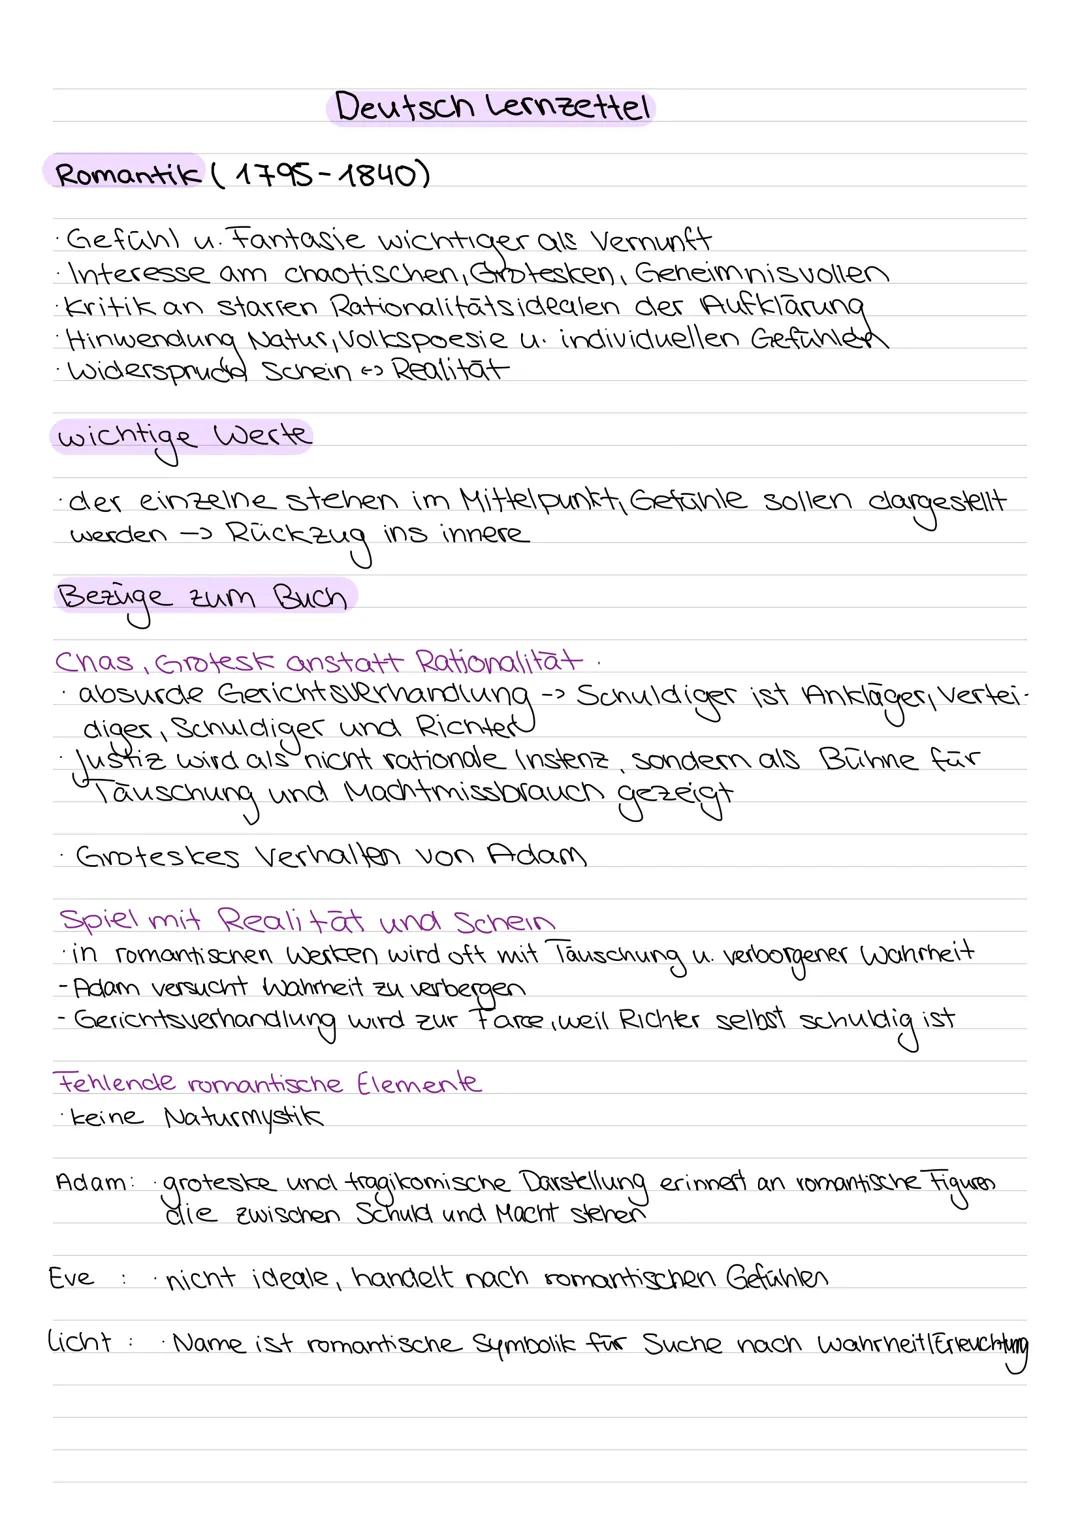 Deutsch Lernzettel
Romantik (1795-1840)
· Gefühl u. Fantasie wichtiger als Vernunft
· Interesse am chaotischen, Grotesken, Geheimnisvollen
· Kritik an starren Rationalitätsidealen der Aufklärung
· Hinwendung Natur, Volkspoesie u. individuellen Gefühlen
· Widerspruch Schein <-> Realität
wichtige Werte
· der einzelne stehen im Mittelpunkt, Gefühle sollen dargestellt
werden -> Rückzug ins innere
Bezüge zum Buch
Chas, Grotesk anstatt Rationalität.
· absurde Gerichtsverhandlung -> Schuldiger ist Ankläger, Vertei-
diger, Schuldiger und Richter
· Justiz wird als nicht rationale Instenz, sondern als Bühne für
Täuschung und Machtmissbrauch gezeigt
· Groteskes Verhalten von Adam
Spiel mit Realität und Schein
· in romantischen Werken wird oft mit Täuschung u. verborgener Wahrheit
- Adam versucht Wahrheit zu verbergen
- Gerichtsverhandlung wird zur Farce, weil Richter selbst schuldig ist
Fehlende romantische Elemente
· keine Naturmystik
Adam: · groteske und tragikomische Darstellung erinnert an romantische Figuren
die zwischen Schuld und Macht stehen
Eve : · nicht ideale, handelt nach romantischen Gefühlen
Licht : · Name ist romantische Symbolik für Suche nach Wahrheit/Erleuchtung